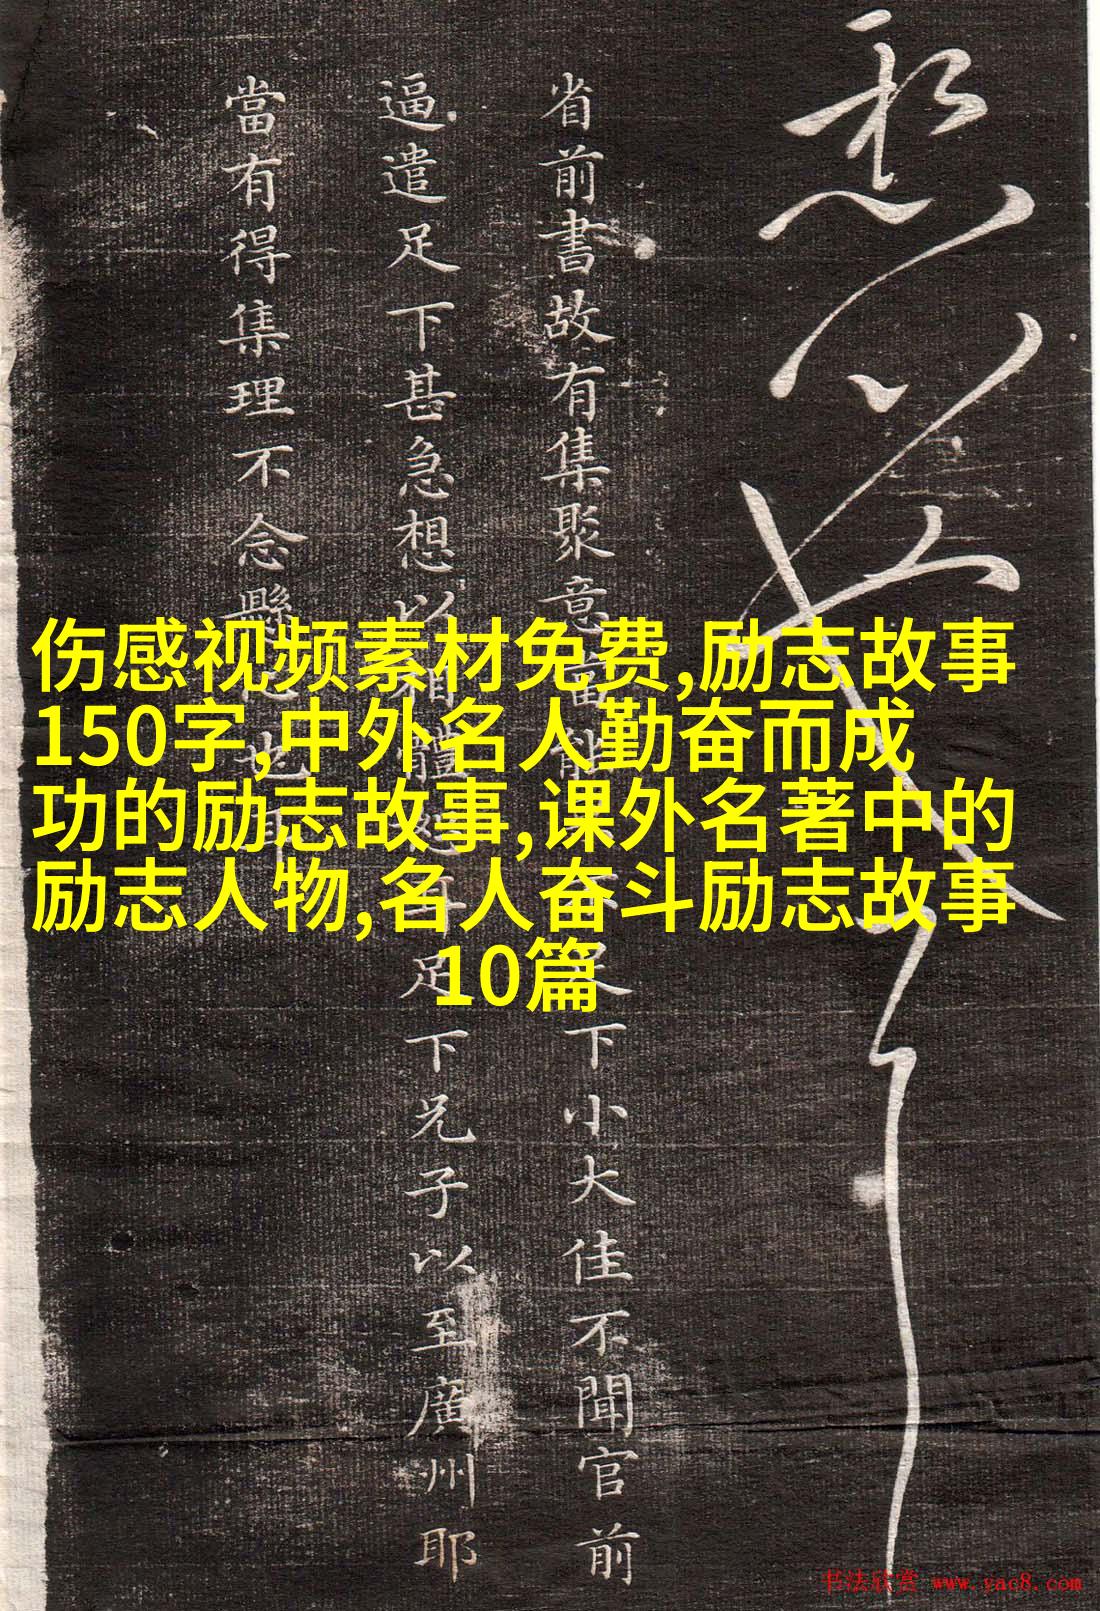 伤感视频素材免费,励志故事
150字,中外名人勤奋而成
功的励志故事,课外名著中的
励志人物,名人奋斗励志故事
10篇
省前書故有集聚意當能
下小大佳不聞官前
逼遣足下甚急想以相體
耳足下兄子以至廣州耶
當有得集理不念懸
也耶
书法欣赏 www.yac8.com